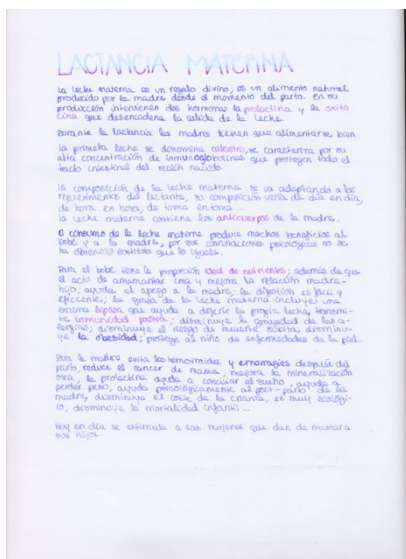 LACTANCIA MATERNA
La leche materna es un regalo divino, es un alimento natural
producido por la madre desde el momento del parto. En su
producción intervienen dos hormonas la prolactina y la oxito
cina que desencadena la salida de la leche.
Durante la lactancia las madres tienen que alimentarse bien
La primera leche se denomina calostro, se caracteriza por su
alta concentración de inmunoglobulinas que protegen todo el
tracto intestinal del recién nacido.
La composición de la leche materna se va adaptando a los
requerimientos del lactante, su composición varia de día en día,
de hora en hora, de toma en toma...
La leche materna contiene los anticuerpos de la madre.
El consumo de la leche materna produce muchos beneficios al
bebé y a la madre, por sus connotaciones psicológicas no se
ha obtenido sustituto que lo iguale.
Para el bebé tiene la proporción ideal de nutrientes; además de que
el acto de amamantar crea y mejora la relación madre-
hijo; ayuda al apego a la madre, la digestión es fácil y
eficiente; la grasa de la leche materna incluye una
enzima lipasa que ayuda a digerir la propia leche; transmi-
te inmunidad pasiva; disminuye la gravedad de las a-
lergias; disminuye el riesgo de muerte súbita; disminu-
ye la obesidad; protege al niño de enfermedades de la piel..
Para la madre evita las hemorroides y hemorragias después del
parto, reduce el cancer de mama, mejora la mineralización
ósea, la prolactina ayuda a conciliar el sueño, ayuda a
perder peso, ayuda psicológicamente al post-parto de la
madre, disminuye el coste de la crianza, es muy ecológi-
co, disminuye la mortalidad infantil...
Hoy en día se estimula a las mujeres que den de mamar a
sus hijos.